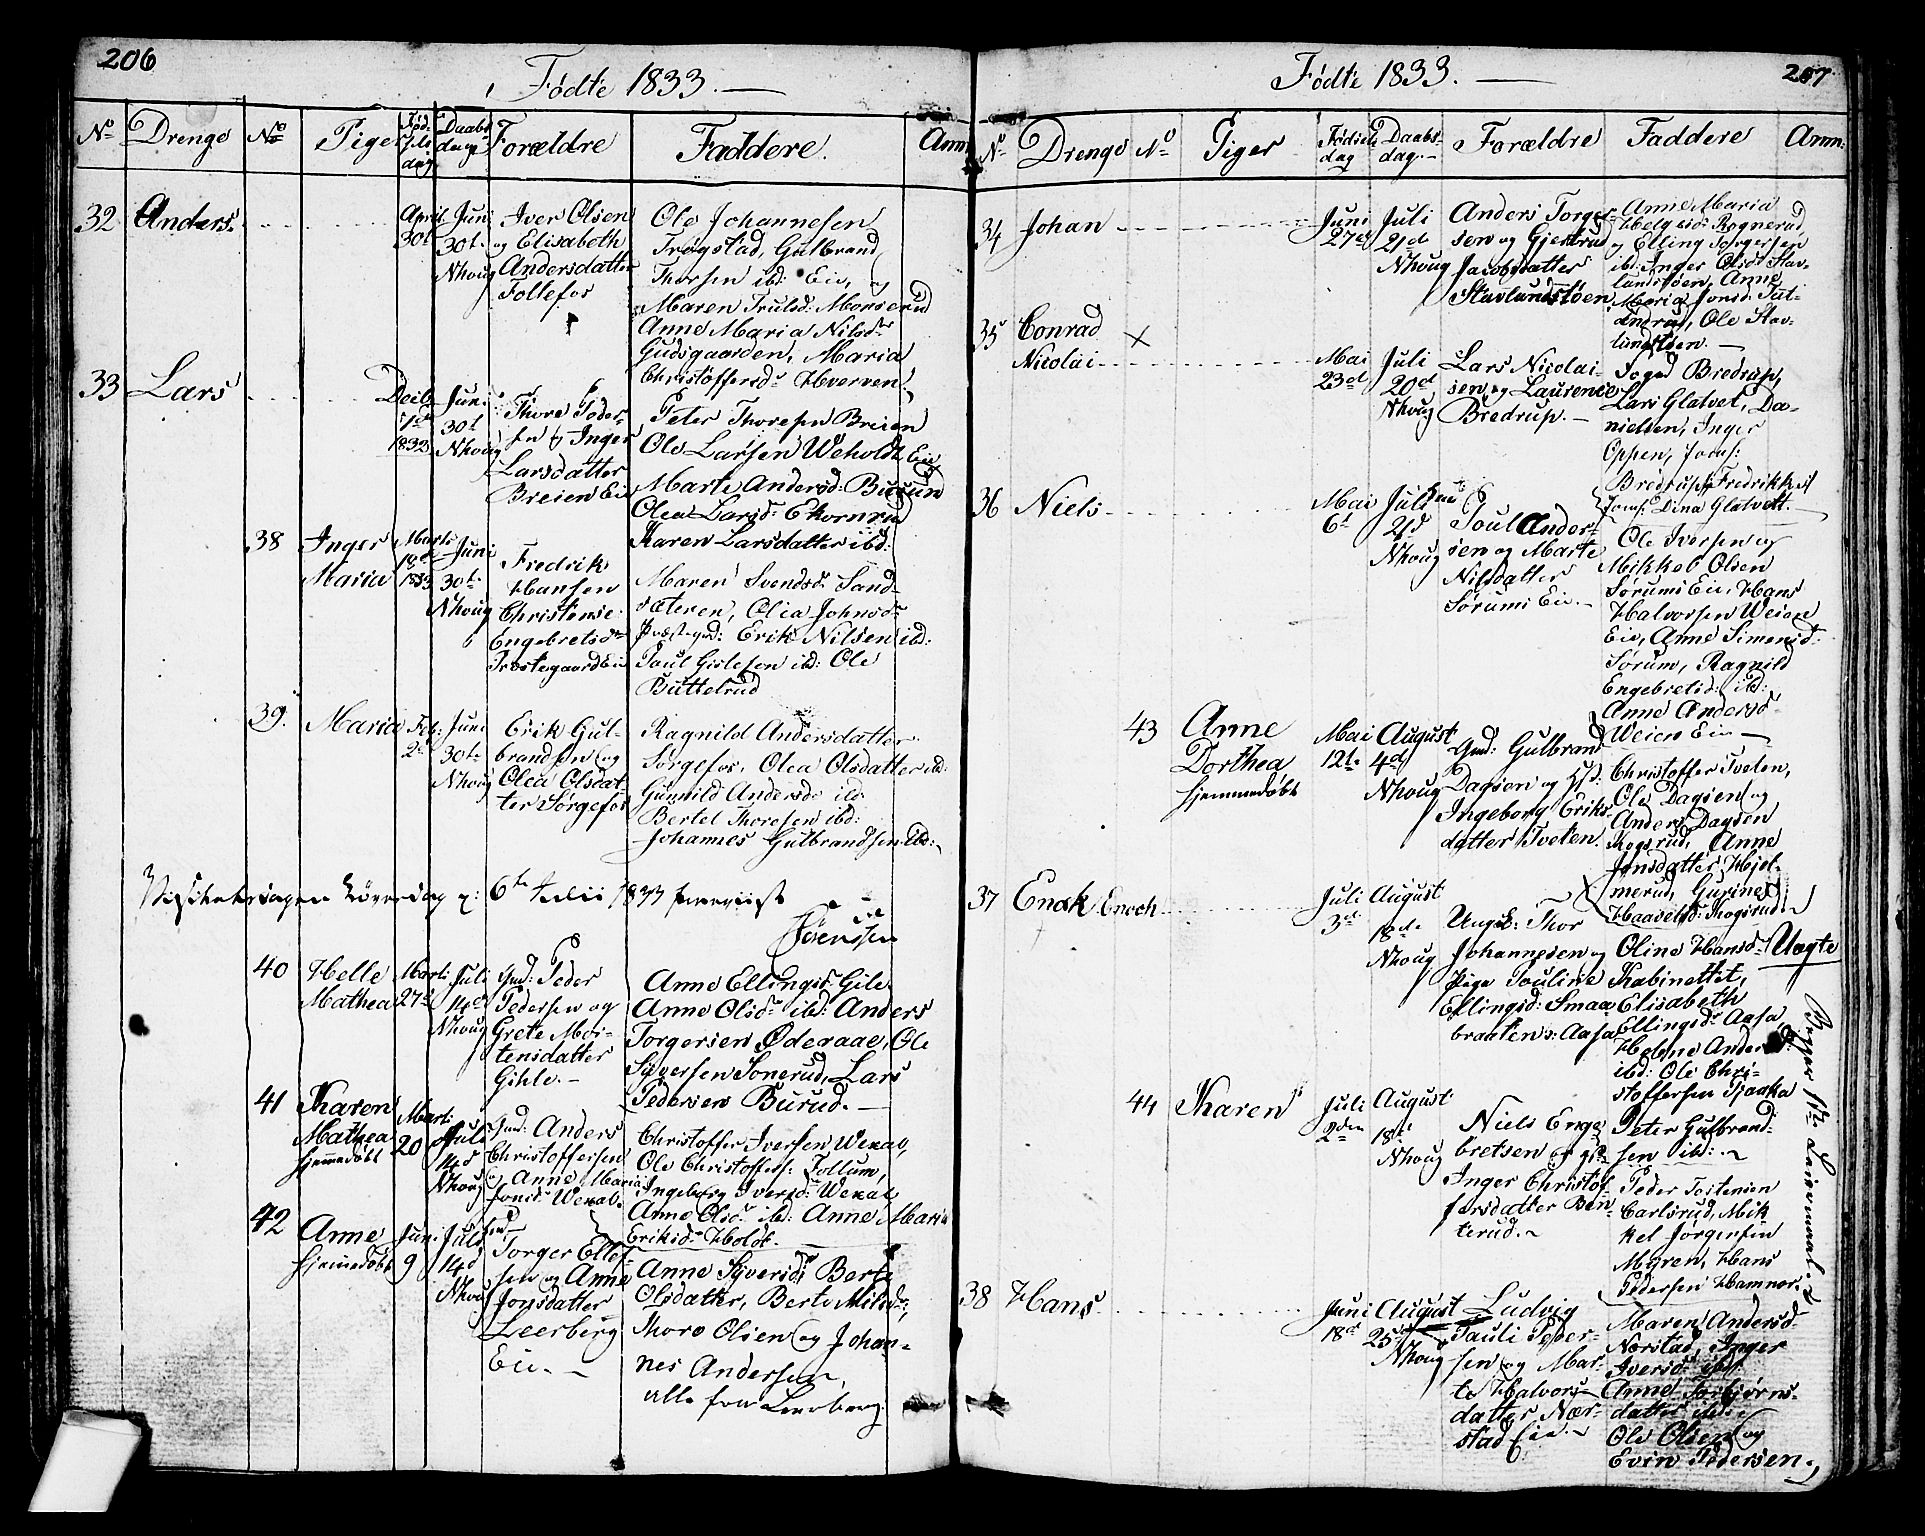 206
Födte 1833.
No Drenge No Piger Födselsdag Daabsdag Forældre Faddere. Anm
32 Anders. April 30t Juni 30t. Nhoug
Iver Olsen
og Elisabeth
Andersdatter
Follefos
Ole Johannesen
Trögstad, Gulbrand
Thorsen ibd: Eie, og
Maren Trulsd: Monserud
Anne Maria Nilsdr
Gudsgaarden, Maria
Christoffersdr Hverven.
33 Lars Decbr 1832 Juni 30t Nhoug
Thore Peder-
sen og Inger
Larsdatter
Breien Eie
Peter Thoresen Breien
Ole Larsen Weholdt Eie
Marte Andersd: Burud
Olea Larsd: Ekornrud
Karen Larsdatter ibd:
38 Inger Maria Marts 18de 1833 Juni 30t. Nhoug
Fredrik
Hansen
Christense
Engebretsdr
Præstegaard Eie
Maren Svendsdr Sand-
sæteren, Olia Johnsdr
Præstegrd: Erik Nilsen ibd:
Poul Gislesen ibd: Ole
Buttelrud
39. Maria Feb: 2 Juni 30t. Nhoug
Erik Gul-
brandsen og
Olea Olsdat-
ter Sörgefos
Ragnild Andersdatter
Sörgefos, Olea Olsdatter ibd:
Gunnild Andersdr ibd:
Bertel Thoresen ibd:
Johannes Gulbrandsen ibd:
Löverdag 6te Julii 1833
40 Helle Mathea Marts 27de Juli 14de Nhoug
Gmd: Peder
Pedersen og
Grete Mor-
tensdatter
Gihle.
Anne Ellingsdr Gile
Anne Olsdr ibd: Anders
Torgersen Öderaae, Ole
Syversen Sonerud, Lars
Pedersen Burud.
41 Karen Mathea hjemmedöbt Marts 20 Juli 14d Nhoug
Gmd: Anders
Christoffersen
og Anne Maria
Jonsdr Wexal.
Christoffer Iversen Wexal,
Ole Christoffers: Follum,
Ingeborg Iversdr Wexal,
Anne Olsdr ibd: Anne Maria
Eriksdr Holdt.
42 Anne hjemmedöbt Juni 9 Juli 14d Nhoug
Torger Ellef-
sen og Anne
Jonsdatter
Leerberg
Eie.
Anne Syversdr Berte
Olsdatter, Berte Nilsdr,
Thore Olsen og Johan-
nes Andersen,
alle fra Leerberg.
207
Födte 1833.
No Drenge No Piger Födselsdag Daabsdag. Forældre Faddere Anm:
34 Johan Juni 27de Juli 21d Nhoug
Anders Torger-
sen og Gjertrud
Jacobsdatter
Stavlundstöen
Anne Maria
Helgesdr Rognerud,
og Elling Torgersen
ibd: Inger Olsdr Stav-
lundstöen, Anne
Maria Jonsd: Tat-
andrud, Ole Stav-
lundstöen.
35 Conrad Nicolai Mai 23de Juli 20d Nhoug
Lars Nicolai-
sen og Laurence
Bredrup.
Foged Bredrup,
Lars Glatvet, Da-
nielsen, Inger
Oppen, Jomf:
Bredrup, Fredrikke
Jomf: Dina Glatvett.
36 Niels Mai 6t Juli 21d Nhoug
Poul Ander-
sen og Marte
Nilsdatter
Sörums Eie.
Ole Iversen og
Mikkel Olsen
Sörums Eie, Hans
Halvorsen Weien
Eie, Anne Simensd:
Sörum, Ragnild
Engebretsd: ibd:
Anne Andersd
Weiens Eie
43 Anne Dorthea hjemmedöbt Mai 12te August 4de Nhoug
Gmd: Gulbrand
Dagsen og
Ingeborg Eriks-
datter Tveten.
Christoffer Tveten,
Ole Dagsen og
Anders Dagsen
Skogsrud, Anne
Jonsdatter Hjel-
merud, Gurine
Haavelsdr Skogsrud
37 Enok Enoch Juli 3d August 18de Nhoug
Ungk: Thor
Johannesen og
Pige Pouline
Ellingsd: Smaa-
braaten s: Aasa
Oline Hansdr
Kabinettet,
Elisabeth
Ellingsdr Aasa
Helene Anders
ibd: Ole Chri-
stoffersen Kjaaka
Uægte
44 Karen Juli 2den August 18de Nhoug
Niels Enge-
bretsen og
Inger Christof-
fersdatter Ben-
terud.
Peter Gulbrand-
sen ibd:
Peder Tostensen
Carlsrud, Mik-
kel Jörgensen
Myren, Hans
Pedersen Hamnor.
38 Hans. Juni 18de August 25de Nhoug
Ludvig
Pauli Peder-
sen og Mar-
te Halvors-
datter Nær-
stad Eie.
Maren Andersd
Nærstad, Inger
Iversdr ibd:
Anne Torbjörns-
datter ibd:
Ole Olsen og
Even Pedersen.